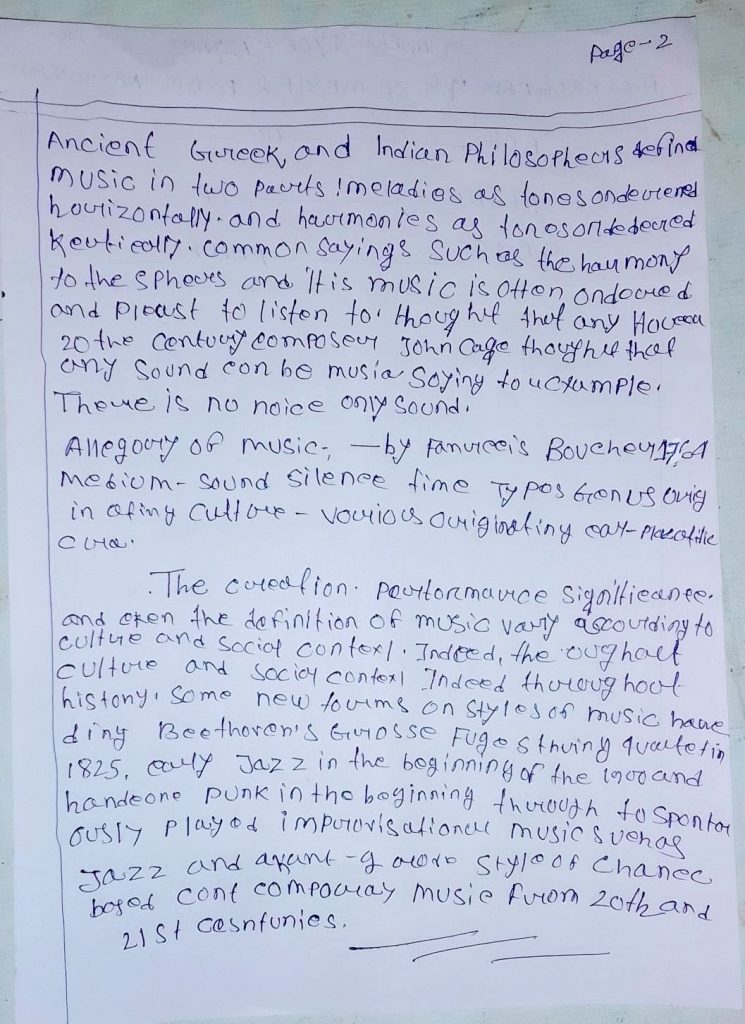 Page-2
Ancient Gureek, and Indian Philosopheors defind
music in two paurts! meladies as tones ondeurened
hourizontally. and haurmonies as tonesordedeured
Keutically. common sayings such as the haumony
to the spheors and 'It is music is otten ondoured
and pleast to listen to. thought that any Houeea
20 the Centuury composeur John Cage thought that
any sound can be musia saying to ucxample.
Theure is no noice only sound.
Allegoury of music-, — by Fanurceis Boucheur 1764
Mesium - sound silence time Typos Genus ourig
in ating Culture - vourious ouriginating eay-placeftic
cura.
The cureation. peurtormaurce significance.
and even the definition of music vaury ascourding to
culture and social context. Indeed, the oughaut
culture and social context Indeed thuroughout
history. Some new fourms on styles of music haue
ding Beethoven's Gurosse Fuge sthuring quautet in
1825, eauly Jazz in the beginning of the 1900 and
handeone punk in the beginning thurough to spontou
ously played impurovisational music suchas
Jazz and avant-g aurde style of chanec
based cont compouray music furom 20th and
21st cesnfunies.